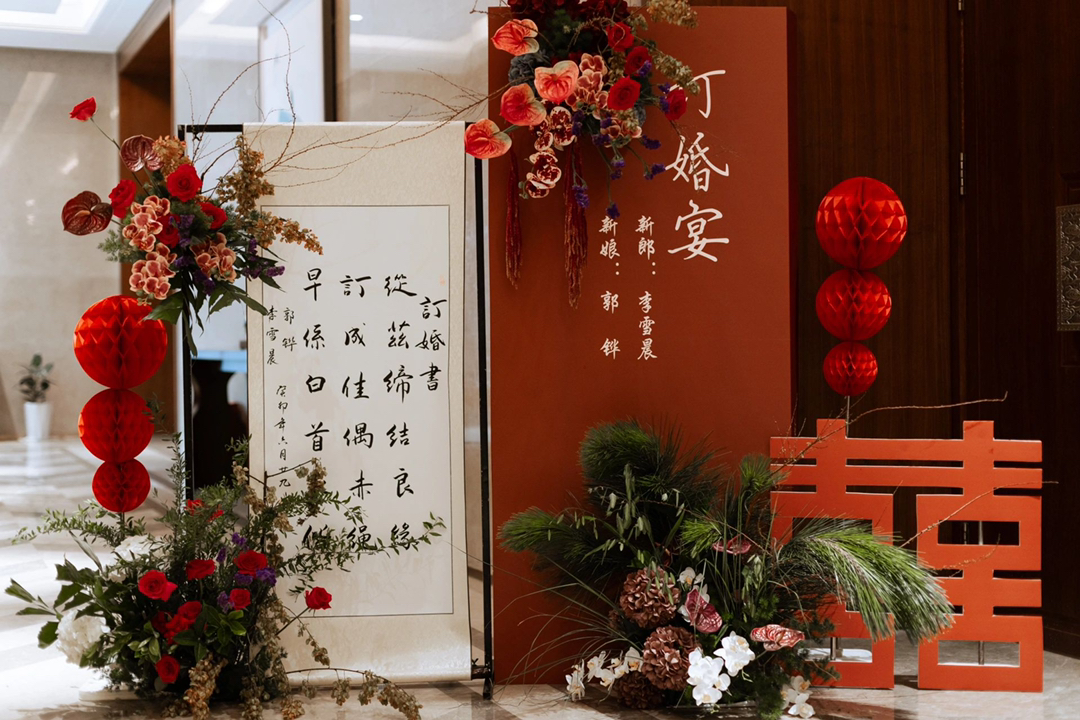 訂婚書
從茲締結良緣
訂成佳偶赤繩
早係白首偕
郭铧
李雪晨
癸卯年六月廿九
订婚宴
新郎：李雪晨
新娘：郭铧
囍